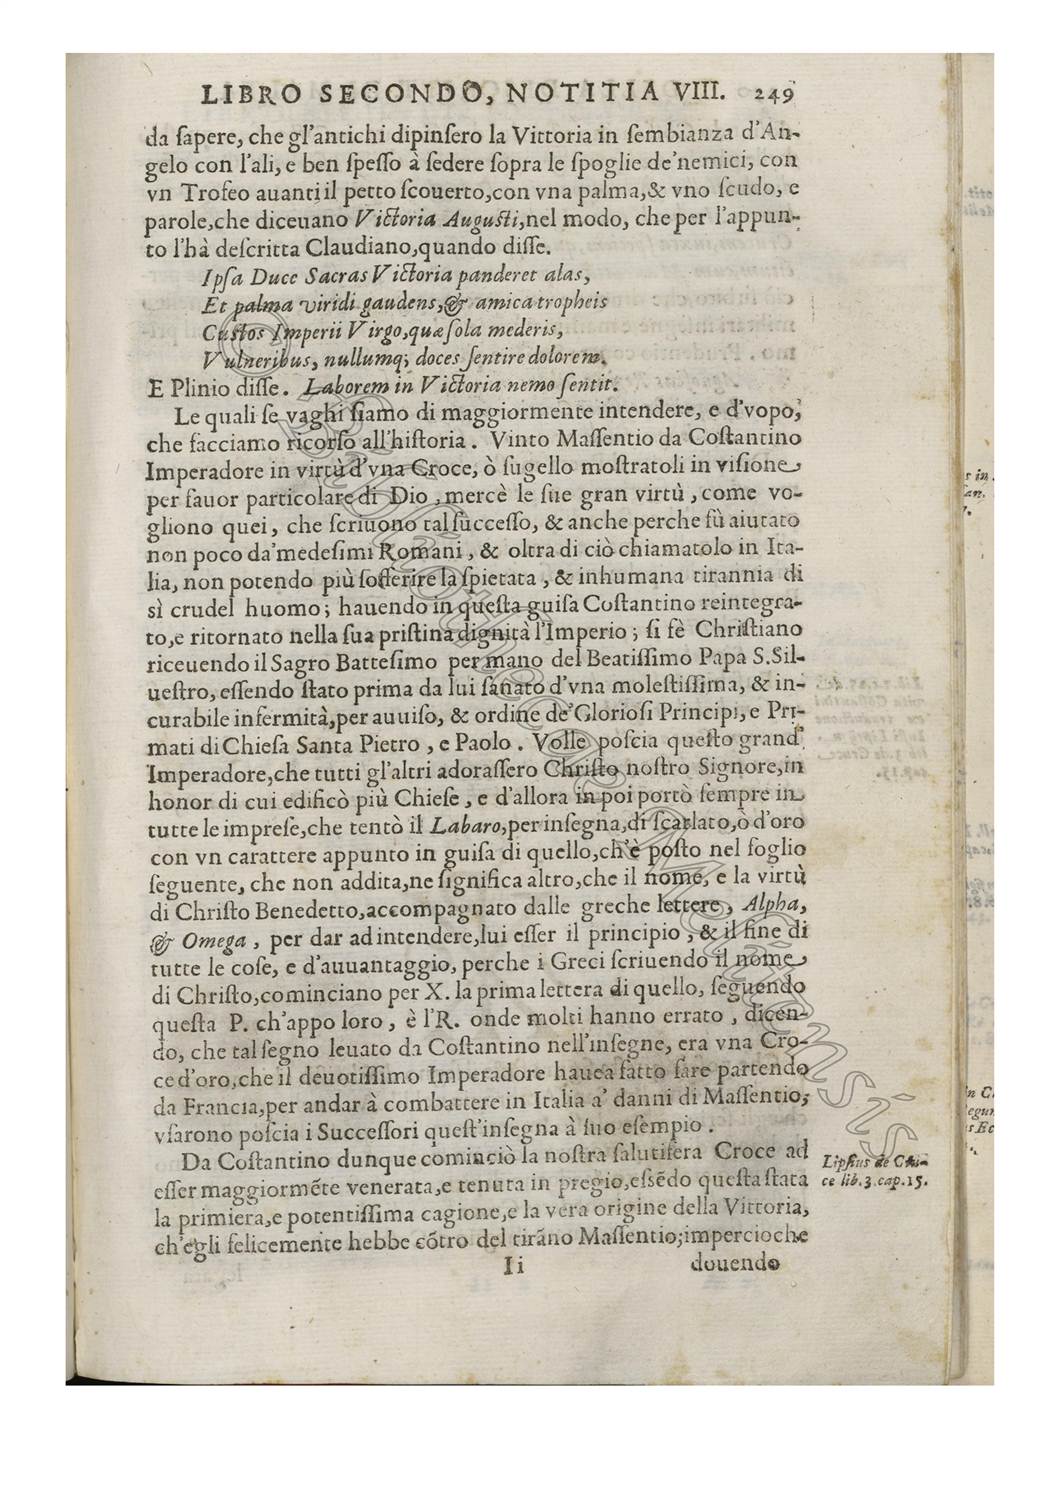 LIBRO SECONDO, NOTITIA VIII. 249
da ſapere, che gl'antichi dipinſero la Vittoria in ſembianza d'An-
gelo con l'ali, e ben ſpeſſo à ſedere ſopra le ſpoglie de'nemici, con
vn Trofeo auanti il petto ſcouerto, con vna palma, & vno ſcudo, e
parole, che diceuano Victoria Auguſti, nel modo, che per l'appun-
to l'hà deſcritta Claudiano, quando diſſe.
Ipſa Duce Sacras Victoria panderet alas,
Et palma viridi gaudens, & amica tropheis
Cuſtos Imperii Virgo, quæ ſola mederis,
Vulneribus, nullumq; doces ſentire dolorem.
E Plinio diſſe. Laborem in Victoria nemo ſentit.
Le quali ſe vaghi ſiamo di maggiormente intendere, e d'vopo,
che facciamo ricorſo all'hiſtoria. Vinto Maſſentio da Coſtantino
Imperadore in virtù d'vna Croce, ò ſugello moſtratoli in viſione
per fauor particolare di Dio, mercè le ſue gran virtù, come vo-
gliono quei, che ſcriuono tal ſucceſſo, & anche perche fù aiutato
non poco da'medeſimi Romani, & oltra di ciò chiamatolo in Ita-
lia, non potendo più ſofferire la ſpietata, & inhumana tirannia di
sì crudel huomo; hauendo in queſta guiſa Coſtantino reintegra-
to, e ritornato nella ſua priſtina dignità l'Imperio; ſi fè Chriſtiano
riceuendo il Sagro Batteſimo per mano del Beatiſſimo Papa S. Sil-
ueſtro, eſſendo ſtato prima da lui ſanato d'vna moleſtiſſima, & in-
curabile infermità, per auuiſo, & ordine de'Glorioſi Principi, e Pri-
mati di Chieſa Santa Pietro, e Paolo. Volle poſcia queſto grand'
Imperadore, che tutti gl'altri adoraſſero Chriſto noſtro Signore, in
honor di cui edificò più Chieſe, e d'allora in poi portò ſempre in
tutte le impreſe, che tentò il Labaro, per inſegna, di ſcarlato, ò d'oro
con vn carattere appunto in guiſa di quello, ch'è poſto nel foglio
ſeguente, che non addita, ne ſignifica altro, che il nome, e la virtù
di Chriſto Benedetto, accompagnato dalle greche lettere, Alpha,
& Omega, per dar ad intendere, lui eſſer il principio, & il fine di
tutte le coſe, e d'auuantaggio, perche i Greci ſcriuendo il nome
di Chriſto, cominciano per X. la prima lettera di quello, ſeguendo
queſta P. ch'appo loro, è l'R. onde molti hanno errato, dicen-
do, che tal ſegno leuato da Coſtantino nell'inſegne, era vna Cro-
ce d'oro, che il deuotiſſimo Imperadore hauea fatto fare partendo
da Francia, per andar à combattere in Italia a' danni di Maſſentio;
vſarono poſcia i Succeſſori queſt'inſegna à ſuo eſempio.
Da Coſtantino dunque cominciò la noſtra ſalutifera Croce ad
eſſer maggiormẽte venerata, e tenuta in pregio, eſsẽdo queſta ſtata
la primiera, e potentiſſima cagione, e la vera origine della Vittoria,
ch'egli felicemente hebbe cõtro del tirãno Maſſentio; impercioche
Ii
douendo
Lipſius de Cru-
ce lib. 3. cap. 15.